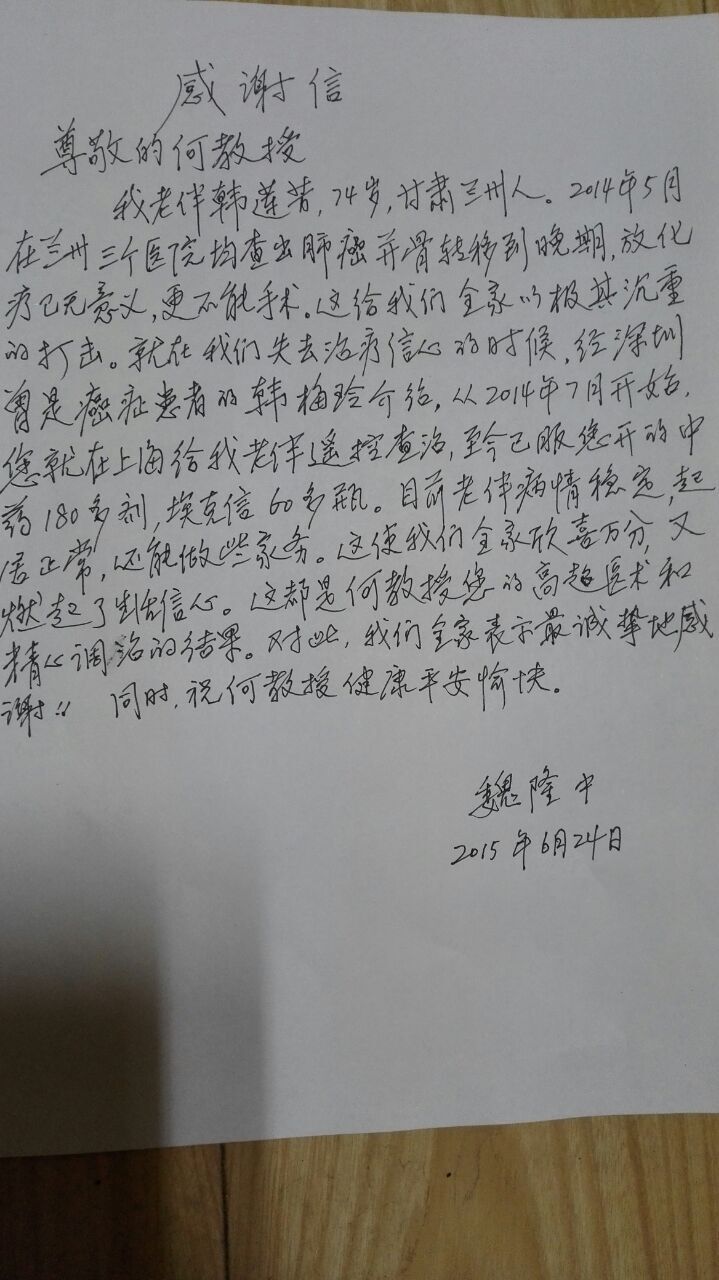 感谢信
尊敬的何教授
我老伴韩莲昔，74岁，甘肃兰州人。2014年5月
在兰州三个医院均查出肺癌并骨转移到晚期，放化
疗已无意义，更不能手术。这给我们全家以极其沉重
的打击。就在我们失去治疗信心的时候，经深圳
曾是癌症患者的韩梅玲介绍，从2014年7月开始，
您就在上海给我老伴遥控查治，至今已服您开的中
药180多剂，埃克信60多瓶。目前老伴病情稳定，起
居正常，还能做些家务。这使我们全家欣喜万分，又
燃起了生活信心。这都是何教授您的高超医术和
精心调治的结果。对此，我们全家表示最诚挚地感
谢!! 同时，祝何教授健康平安愉快。
魏隆中
2015年6月24日